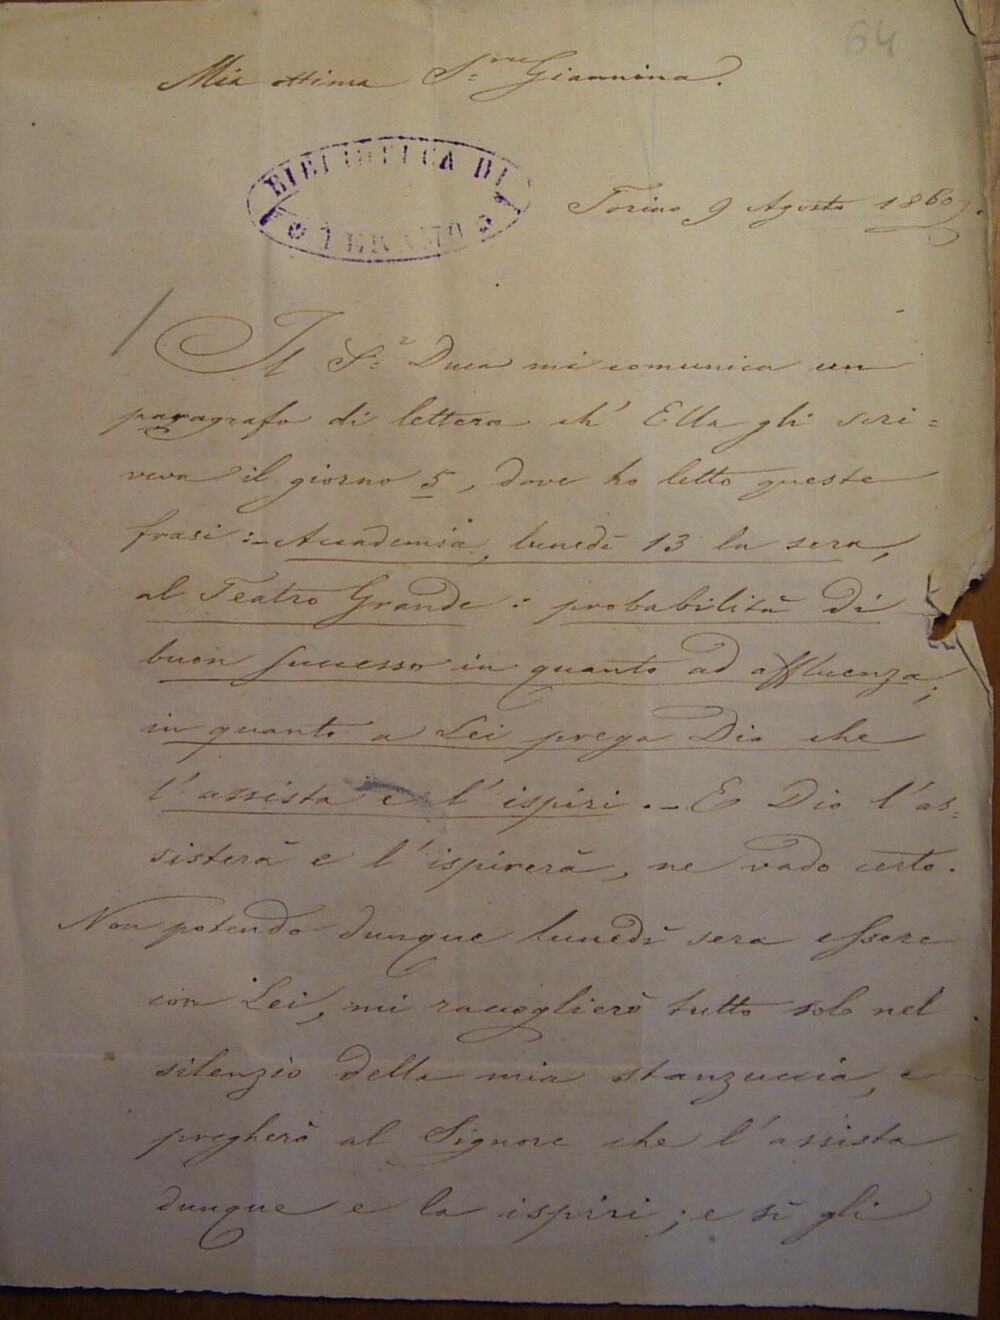 64
Mia ottima S:ra Giannina.
BIBLIOTECA DI
TERAMO
Torino 9 Agosto 1860.
Il S:r Duca mi comunica un
paragrafo di lettera ch' Ella gli scri=
veva il giorno 5, dove ho letto queste
frasi :- Accademia, lunedì 13 la sera,
al Teatro Grande : probabilità di
buon successo in quanto ad affluenza;
in quanto a Lei prega Dio che
l'assista e l'ispiri. - E Dio l'as=
sisterà e l'ispirerà, ne vado certo.
Non potendo dunque lunedì sera essere
con Lei, mi raccoglierò tutto solo nel
silenzio della mia stanzuccia, e
pregherò al Signore che l'assista
dunque e la ispiri ; e sì gli